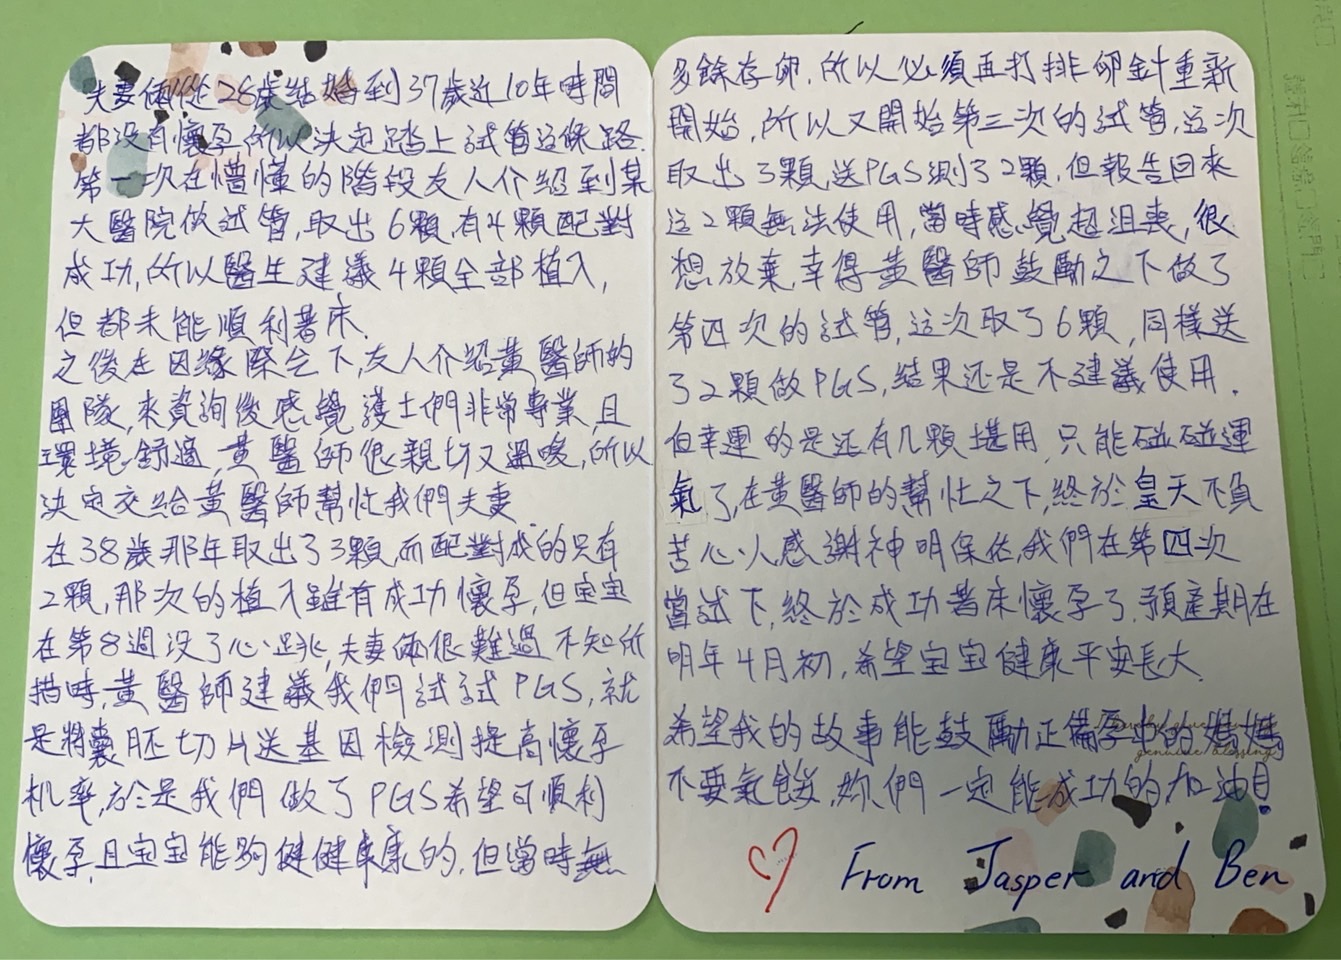 夫妻倆從28歲結婚到37歲近10年時間
都沒有懷孕所以決定踏上試管這條路.
第一次在懵懂的階段友人介紹到某
大醫院做試管,取出6顆,有4顆配對
成功,所以醫生建議4顆全部植入,
但都未能順利著床.
之後在因緣際会下,友人介紹黃醫師的
團隊,來資詢後感覺護士們非常專業,且
環境舒適,黃醫師很親切又溫暖,所以
決定交給黃醫師幫忙我們夫妻
在38歲那年取出了3顆,而配對成的只有
2顆,那次的植入雖有成功懷孕,但宝宝
在第8週沒了心跳,夫妻倆很難過不知所
措時,黃醫師建議我們試試PGS,就
是將囊胚切片送基因檢測提高懷孕
机率,於是我們做了PGS希望可順利
懷孕,且宝宝能夠健健康康的,但當時無
多餘存卵,所以必須再打排卵針重新
開始,所以又開始第三次的試管,这次
取出3顆,送PGS測了2顆,但報告回來
这2顆無法使用,當時感覺超沮喪,很
想放棄,幸得黃醫師鼓勵之下做了
第四次的試管,这次取了6顆,同樣送
了2顆做PGS,結果还是不建議使用.
但幸運的是还有几顆堪用,只能碰碰運
氣了,在黃醫師的幫忙之下,終於皇天不負
苦心人感謝神明保佑,我們在第四次
嘗試下,終於成功著床懷孕了,預產期在
明年4月初,希望宝宝健康平安長大.
希望我的故事能鼓勵正備孕中的媽媽
不要氣餒,妳們一定能成功的,加油!
From Jasper and Ben